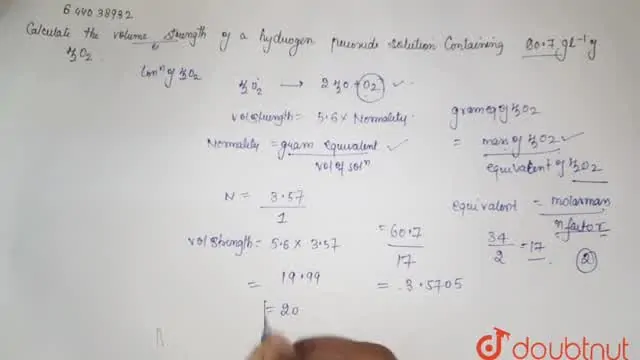 6 440 38932
Calculate the volume strength of a hydrogen peroxide solution Containing 60.7 gl⁻¹ of
H2O2.
Conⁿ of H2O2
H2O2 → 2H2O + O2
vol strength = 5.6 × Normality.
Normality = gram equivalent / vol of solⁿ
gram eq of H2O2
= mass of H2O2 / equivalent of H2O2
N = 3.57 / 1
equivalent = molarmass / n factor
34 / 2 = 17
2
vol strength = 5.6 × 3.57
= 60.7 / 17
= 19.99
= 3.5705
= 20
doubtnut